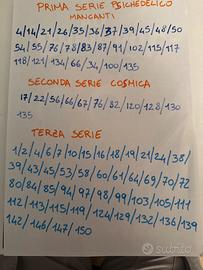 PRIMA SERIE PSICHEDELICO
MANCANTI
4/14/21/26/35/36/37/39/45/48/50
54/55/76/78/83/87/91/102/115/117
118/121/134/66/34/100/135
SECONDA SERIE COSMICA
17/22/56/64/67/76/82/120/128/130
135
TERZA SERIE
1/2/4/6/7/10/15/16/18/19/21/24/38/
39/43/45/53/58/60/61/64/69/70/72
80/84/85/94/97/98/99/103/105/111
112/113/115/119/124/129/132/136/139
142/146/147/150
subito